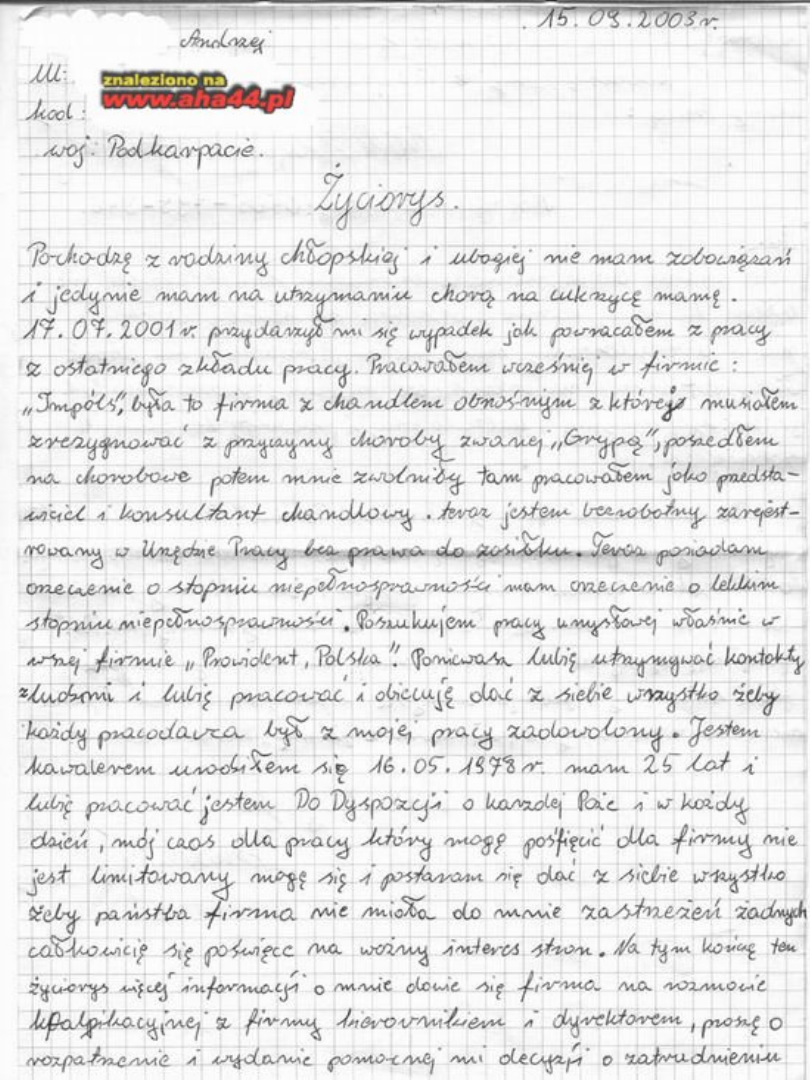 15.09.2003r.
Andrzej
Ul:
znaleziono na
www.aha44.pl
kod:
woj: Podkarpacie.
Życiorys.
Pochodzę z rodziny chłopskiej i ubogiej nie mam zobowiązań
i jedynie mam na utrzymaniu chorą na cukrzycę mamę.
17.07.2001r. przydarzył mi się wypadek jak powracałem z pracy
z ostatniego zkładu pracy. Pracowałem wcześniej w firmie:
„Impóls", była to firma z chandlem obnośnym z której musiałem
zrezygnować z przyczyny choroby zwanej „Grypą", poszedłem
na chorobowe potem mnie zwolniły tam pracowałem jako przedsta-
wiciel i konsultant chandlowy. teraz jestem bezrobotny zarejest-
rowany w Urzędzie Pracy bez prawa do zasiłku. Teraz posiadam
orzeczenie o stopniu niepełnosprawności mam orzeczenie o lekkim
stopniu niepełnosprawności. Poszukujem pracy umysłowej właśnie w
wszej firmie „Prowident, Polska". Poniewasz lubię utrzymywać kontakty
z ludzmi i lubię pracować i obiecuję dać z siebie wrzystko żeby
każdy pracodawca był z mojej pracy zadowolony. Jestem
kawalerem urodziłem się 16.05.1978r. mam 25 lat i
lubię pracować jestem Do Dyspozcji o karzdej Poże i w każdy
dzień, mój czas dla pracy który mogę posfięcić dla firmy nie
jest limitowany mogę się i postaram się dać z siebie wszystko
żeby państba firma nie miała do mnie zastrzeżeń żadnych
całkowicię się poświęce na wożny interes stron. Na tym kończę ten
życiorys więcej informacji o mnie dowie się firma na rozmowie
kfalpikacyjnej z firmy kierownikiem i dyrektorem, proszę o
rozpatrzenie i wydanie pomocnej mi decyzji o zatrudnieniu